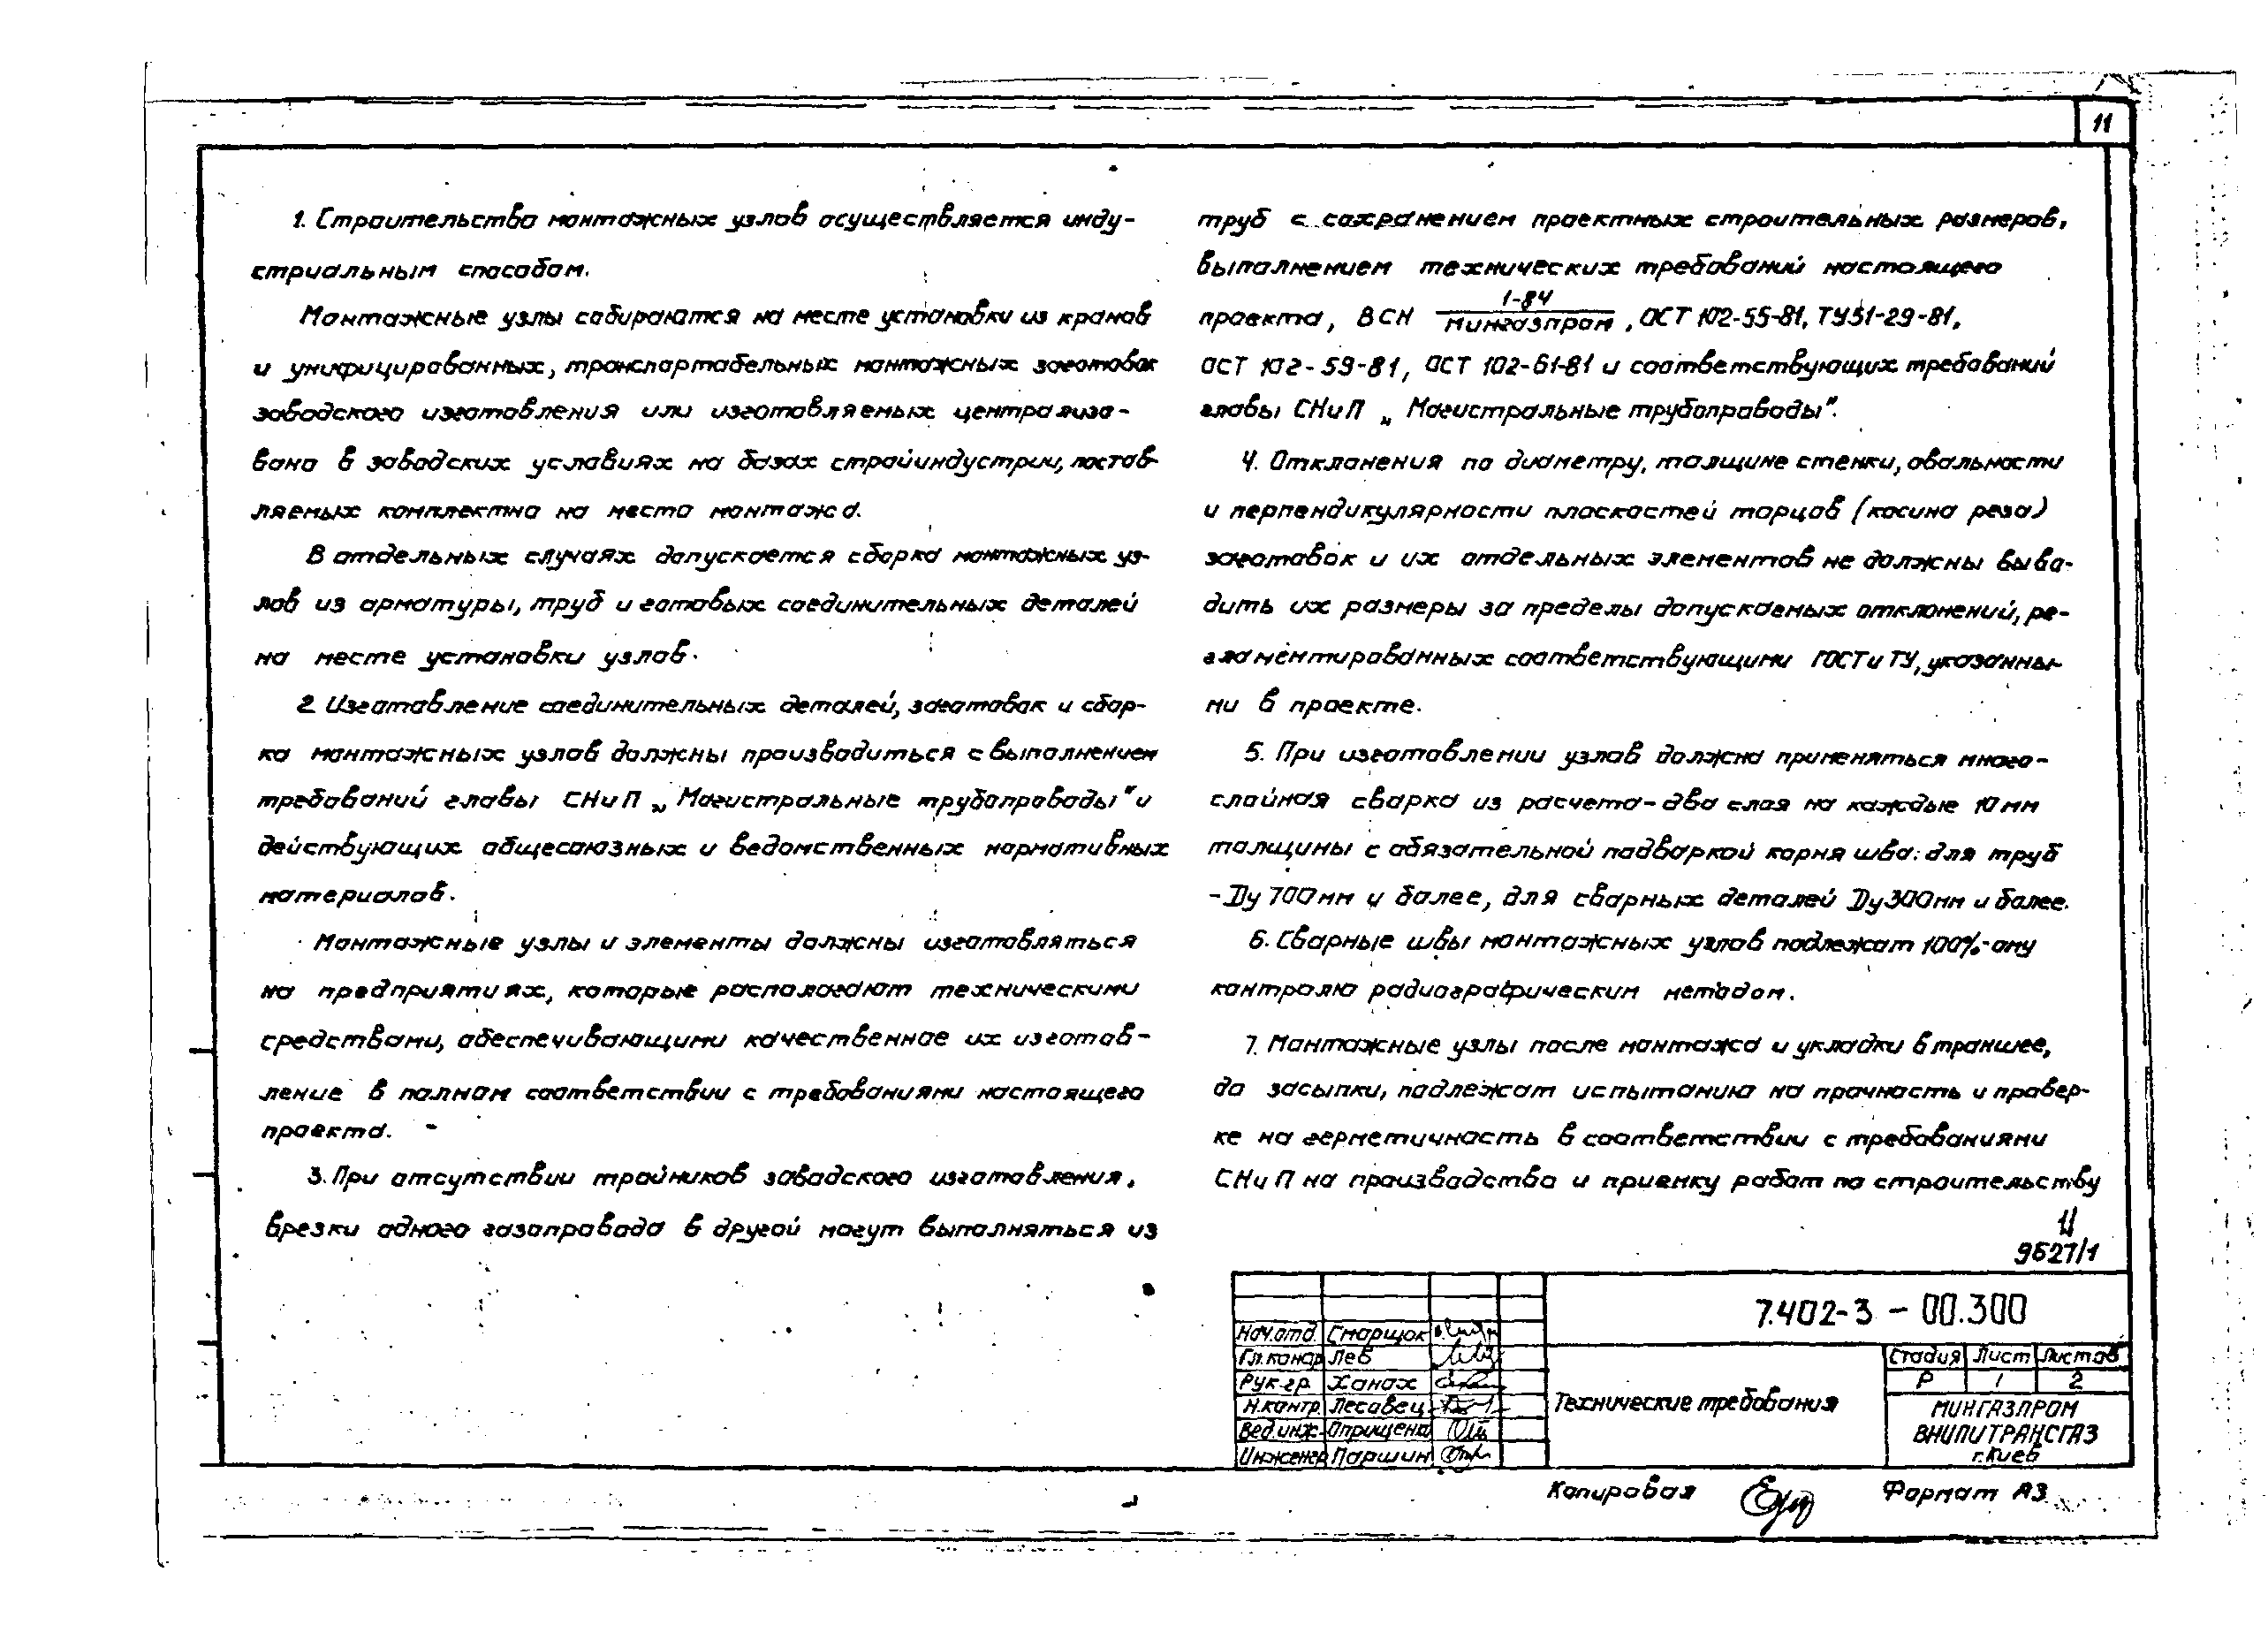 11
1. Строительство монтажных узлов осуществляется инду-
стриальным способом.
Монтажные узлы собираются на месте установки из кранов
и унифицированных, транспортабельных монтажных заготовок
заводского изготовления или изготовляемых централизо-
вано в заводских условиях на базах стройиндустрии, постав-
ляемых комплектно на место монтажа.
В отдельных случаях допускается сборка монтажных уз-
лов из арматуры, труб и готовых соединительных деталей
на месте установки узлов.
2. Изготовление соединительных деталей, заготовок и сбор-
ка монтажных узлов должны производиться с выполнением
требований главы СНиП „Магистральные трубопроводы" и
действующих общесоюзных и ведомственных нормативных
материалов.
Монтажные узлы и элементы должны изготовляться
на предприятиях, которые располагают техническими
средствами, обеспечивающими качественное их изготов-
ление в полном соответствии с требованиями настоящего
проекта.
3. При отсутствии тройников заводского изготовления,
врезки одного газопровода в другой могут выполняться из
труб с сохранением проектных строительных размеров,
выполнением технических требований настоящего
проекта, ВСН 1-84/Мингазпром, ОСТ 102-55-81, ТУ51-29-81,
ОСТ 102-59-81, ОСТ 102-61-81 и соответствующих требований
главы СНиП „Магистральные трубопроводы".
4. Отклонения по диаметру, толщине стенки, овальности
и перпендикулярности плоскостей торцов (косина реза)
заготовок и их отдельных элементов не должны выво-
дить их размеры за пределы допускаемых отклонений, ре-
гламентированных соответствующими ГОСТ и ТУ, указанны-
ми в проекте.
5. При изготовлении узлов должна применяться много-
слойная сварка из расчета-два слоя на каждые 10 мм
толщины с обязательной подваркой корня шва: для труб
-Ду 700мм и более, для сварных деталей Ду300мм и более.
6. Сварные швы монтажных узлов подлежат 100%-ому
контролю радиографическим методом.
7. Монтажные узлы после монтажа и укладки в траншее,
до засыпки, подлежат испытанию на прочность и провер-
ке на герметичность в соответствии с требованиями
СНиП на производство и приемку работ по строительству
11
9627/1
7.402-3 - 00.300
Нач.отд. Сморщок
Гл.констр Лев
Рук.гр. Ханах
Н.контр. Лесовец
Вед.инж. Оприщено
Инженер Паршин
Технические требования
Стадия Лист Листов
Р 1 2
МИНГАЗПРОМ
ВНИПИТРАНСГАЗ
г.Киев
Копировал
Формат А3